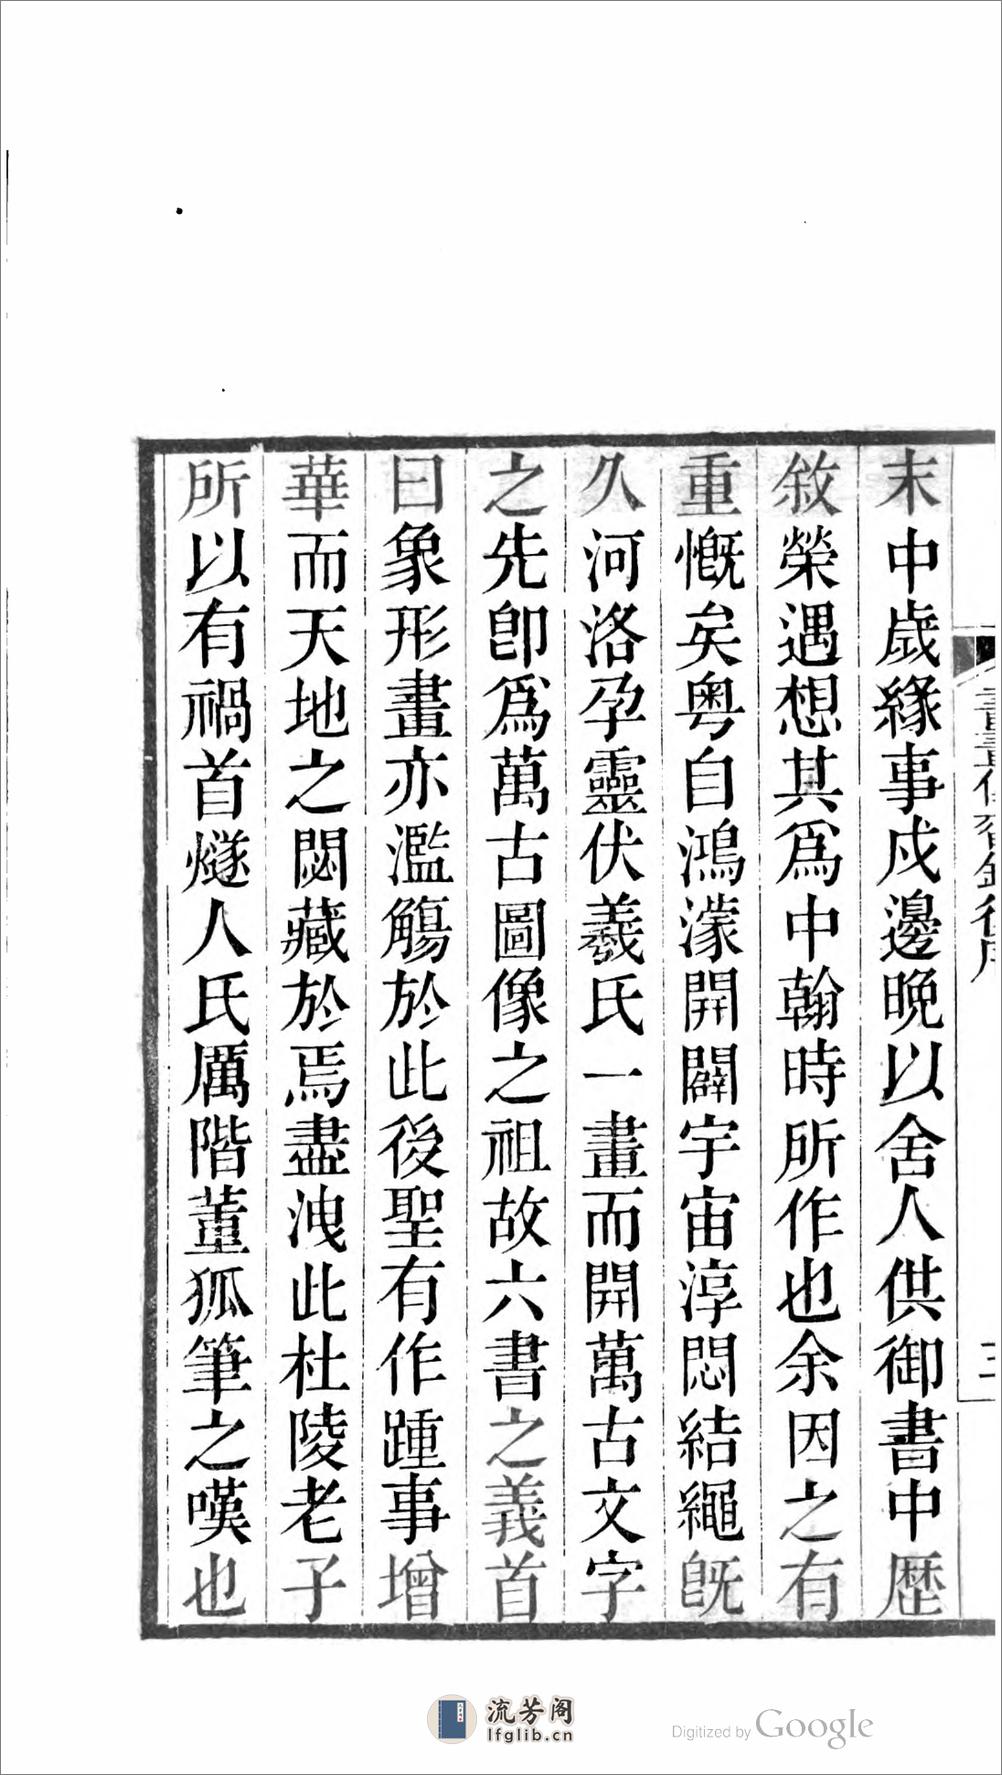 末中歲緣事戍邊晚以舍人供御書中歷
敘榮遇想其爲中翰時所作也余因之有
重慨矣粤自鴻濛開闢宇宙淳悶結繩旣
久河洛孕靈伏羲氏一畫而開萬古文字
之先卽爲萬古圖像之祖故六書之義首
曰象形畫亦濫觴於此後聖有作踵事增
華而天地之閟藏於焉盡洩此杜陵老子
所以有禍首燧人氏厲階董狐筆之嘆也
流芳阁
lfglib.cn
Digitized by Google